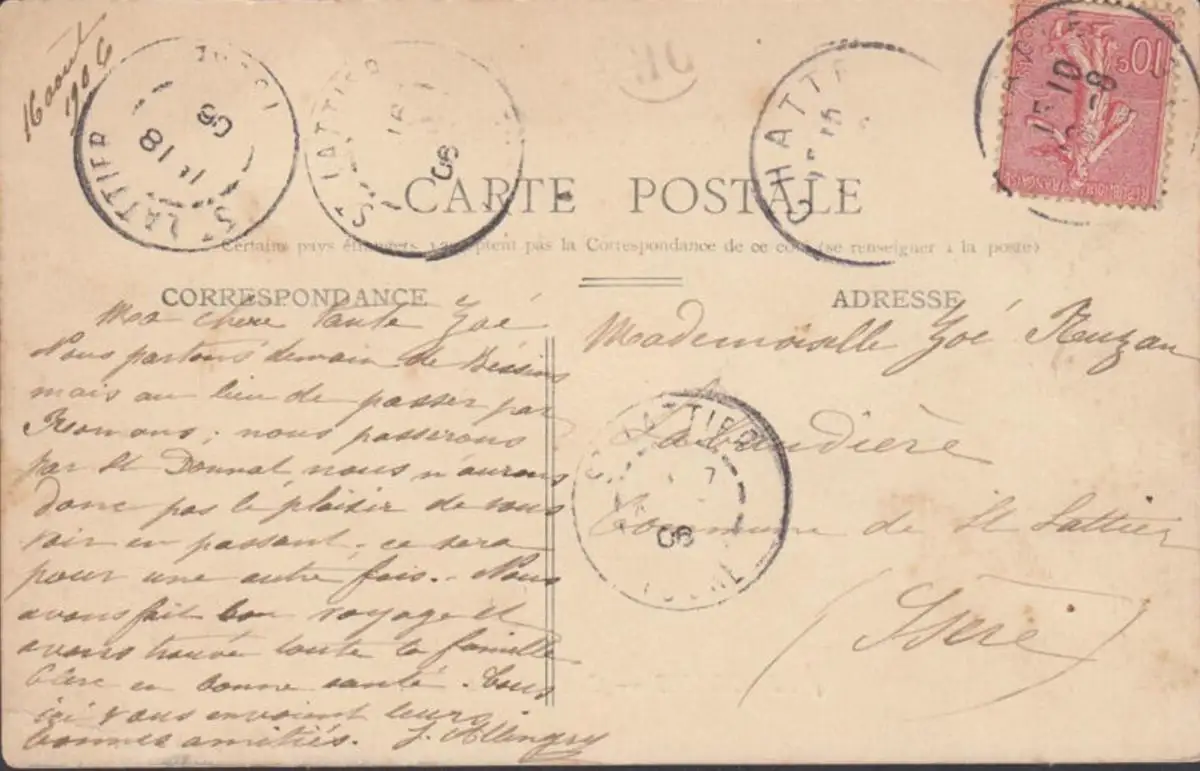 16 août
1906
ST LATTIER
18
06
ST LATTIER
06
CHATTE
10c
REPUBLIQUE FRANÇAISE
CARTE POSTALE
Certains pays étrangers n'acceptent pas la Correspondance de ce côté (se renseigner à la poste)
CORRESPONDANCE
Ma chère tante Zoé
Nous partons demain de Bessins
mais au lieu de passer par
Romans, nous passerons
par St Donnat nous n'aurons
donc pas le plaisir de vous
voir en passant, ce sera
pour une autre fois. Nous
avons fait bon voyage et
avons trouvé toute la famille
Clerc en bonne santé. Tous
ici vous envoient leurs
bonnes amitiés. J. Allingry
ADRESSE
Mademoiselle Zoé
La
Commune de St Lattier
(Isère)
ST LATTIER
7
06
ISERE